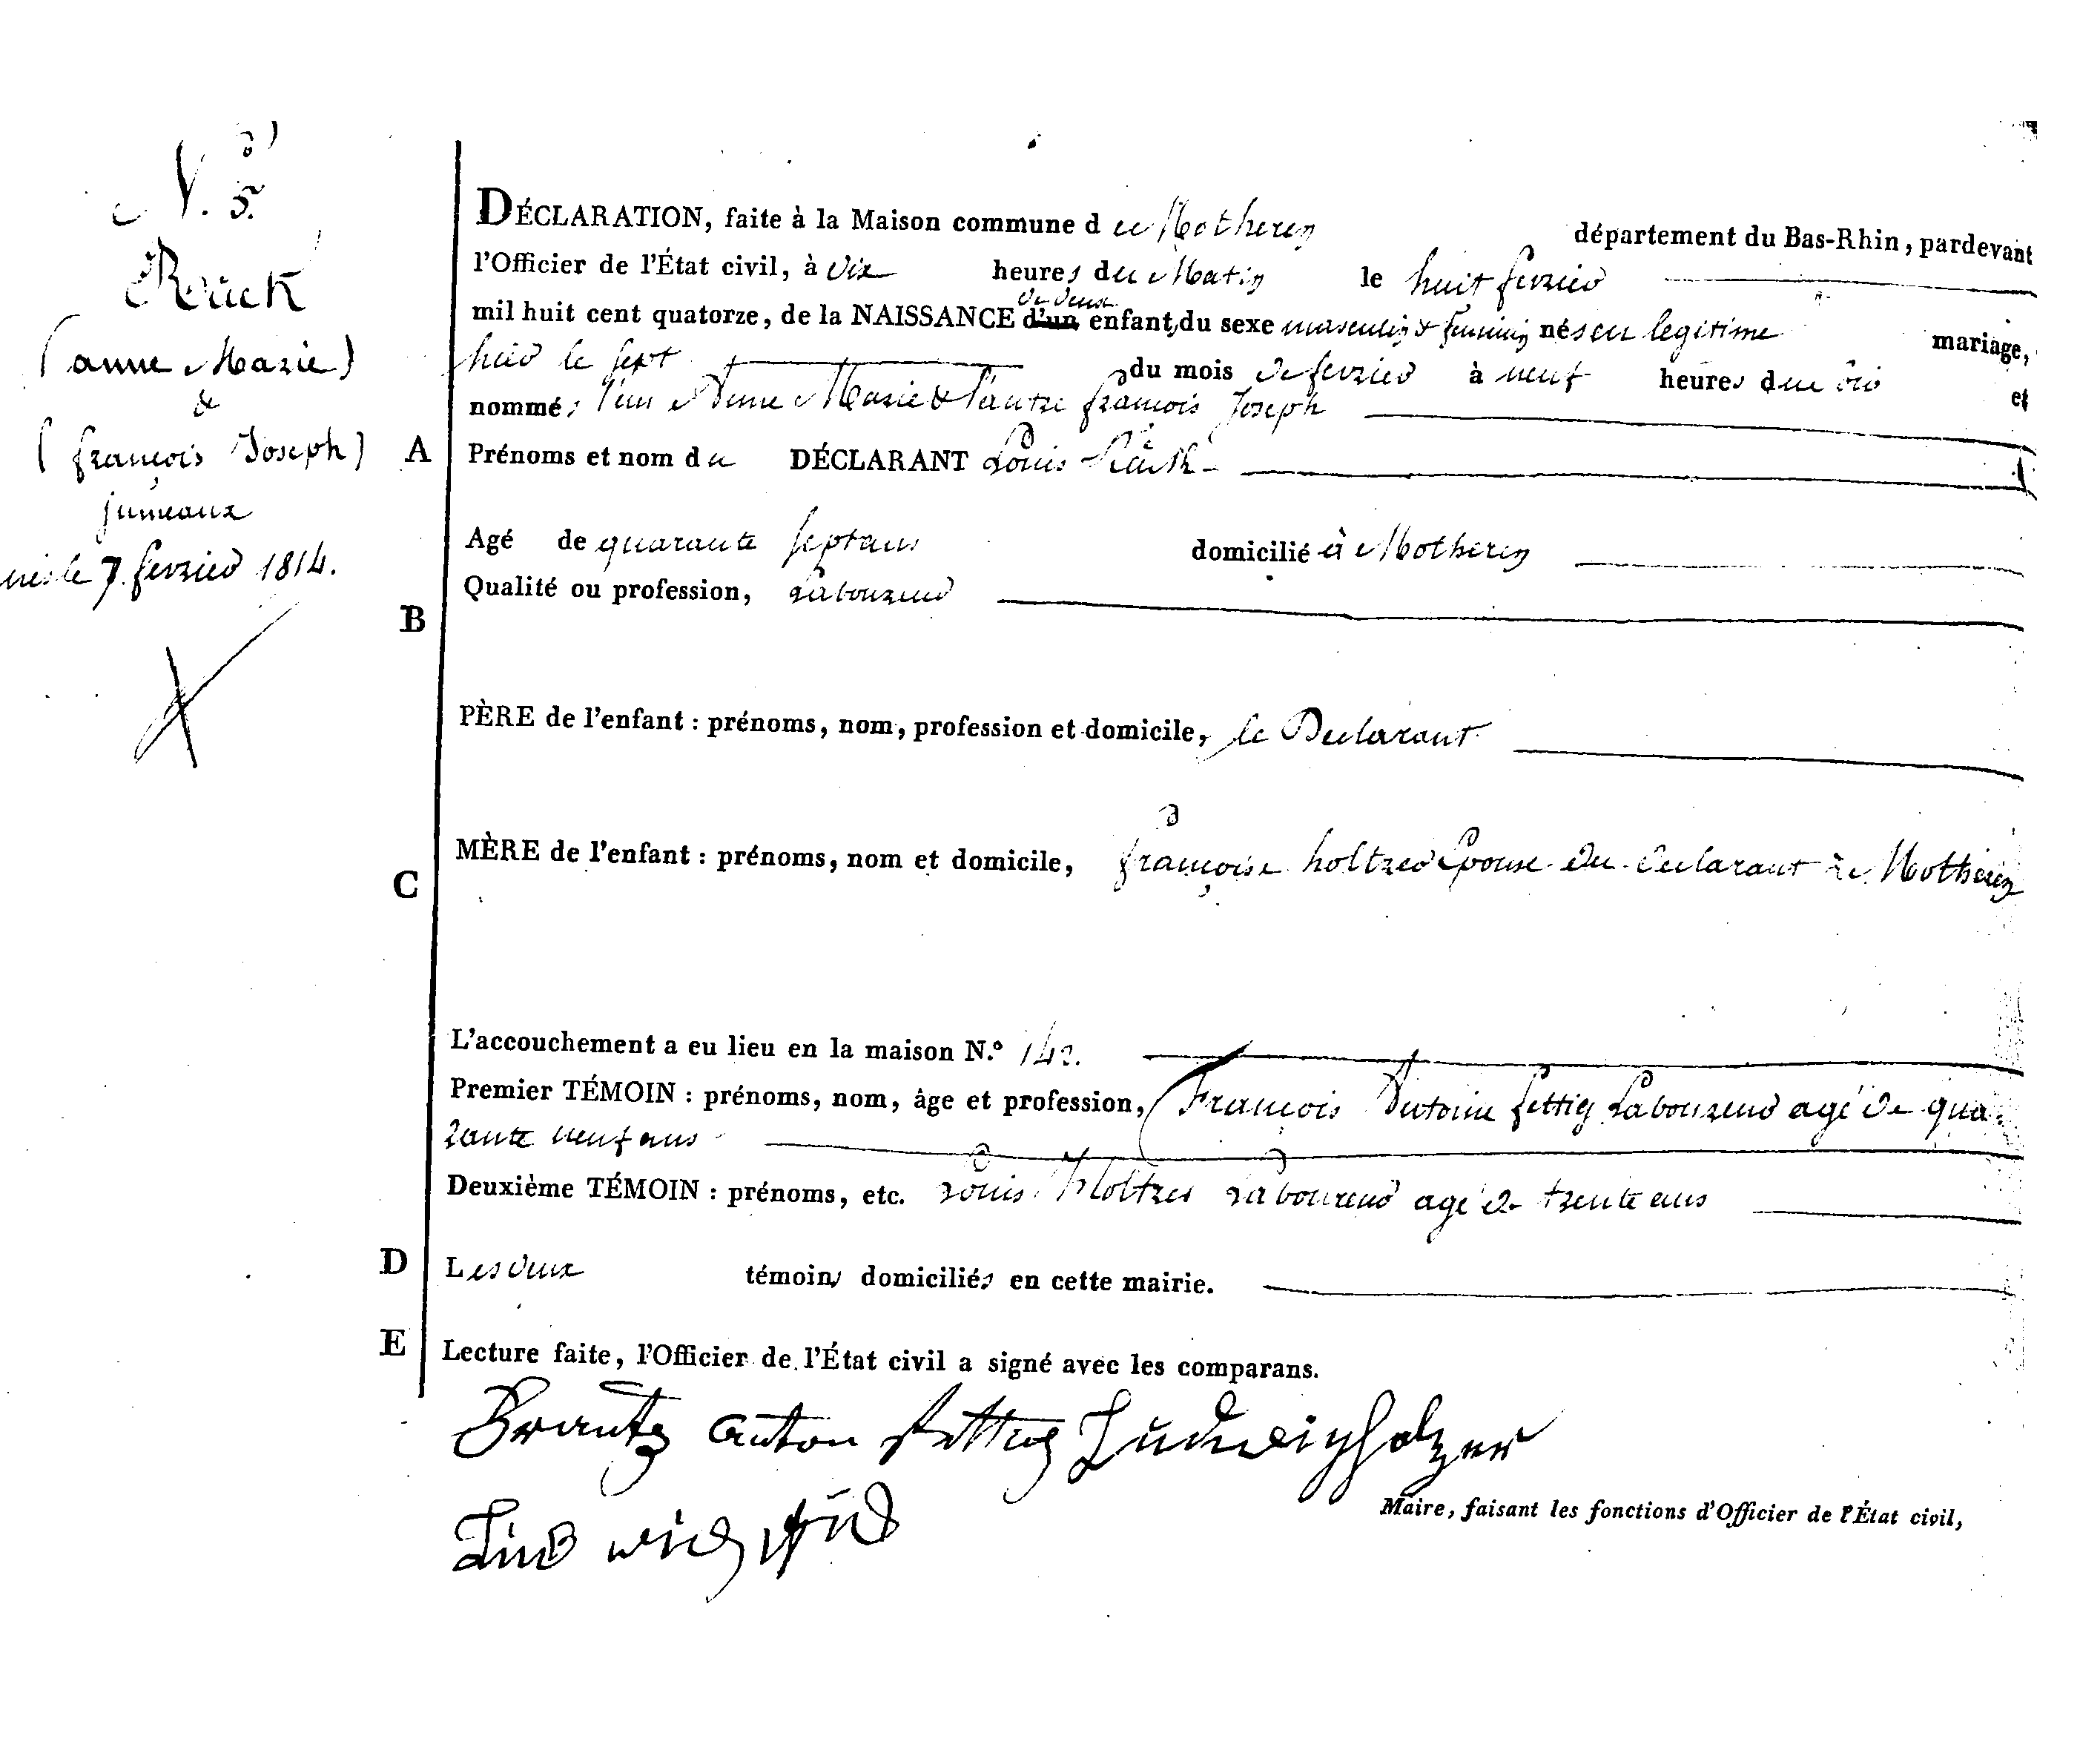 N. 5.
Rück
(anne Marie)
&
(françois Joseph)
jumeaux
nés le 7. fevrier 1814.
DÉCLARATION, faite à la Maison commune d e Motheren département du Bas-Rhin, pardevant
l'Officier de l'État civil, à dix heures du Matin le huit fevrier
de deux
mil huit cent quatorze, de la NAISSANCE d'un enfant, du sexe masculin & feminin nés en legitime mariage,
hier le sept du mois de fevrier à neuf heures du soir et
nommé s l'un Anne Marie & l'autre françois Joseph
A Prénoms et nom du DÉCLARANT Louis Rück
Agé de quarante sept ans domicilié à Motheren
Qualité ou profession, Laboureur
B
PÈRE de l'enfant : prénoms, nom, profession et domicile, le Declarant
MÈRE de l'enfant : prénoms, nom et domicile, françoise holtzer Epouse du declarant à Motheren
C
L'accouchement a eu lieu en la maison N.º 142.
Premier TÉMOIN : prénoms, nom, âge et profession, François Antoine fettig Laboureur agé de qua-
rante neuf ans
Deuxième TÉMOIN : prénoms, etc. Louis Holtzer Laboureur agé de trente ans
D Les deux témoins domiciliés en cette mairie.
E Lecture faite, l'Officier de l'État civil a signé avec les comparans.
Frantz anton fettig Ludwig holzer
Maire, faisant les fonctions d'Officier de l'État civil,
Ludwig Rück